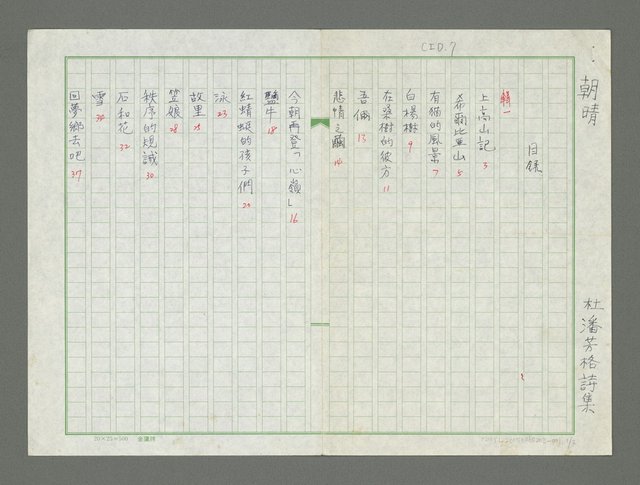 朝晴
杜潘芳格詩集
目錄
輯一
上高山記 3
希爾比亞山 5
有貓的風景 7
白楊樹 9
在桑樹的彼方 11
吾倆 13
悲情之繭 14
今朝再登「心嶺」 16
鹽牛 18
紅蜻蜓的孩子們 20
泳 23
故里 25
笠娘 28
秩序的規誡 30
石和花 32
雪 34
回夢鄉去吧 37
20×25=500 金鷹牌